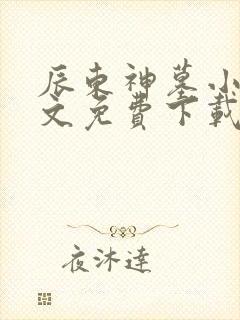 辰東神墓小
文免費下載
夜沐達